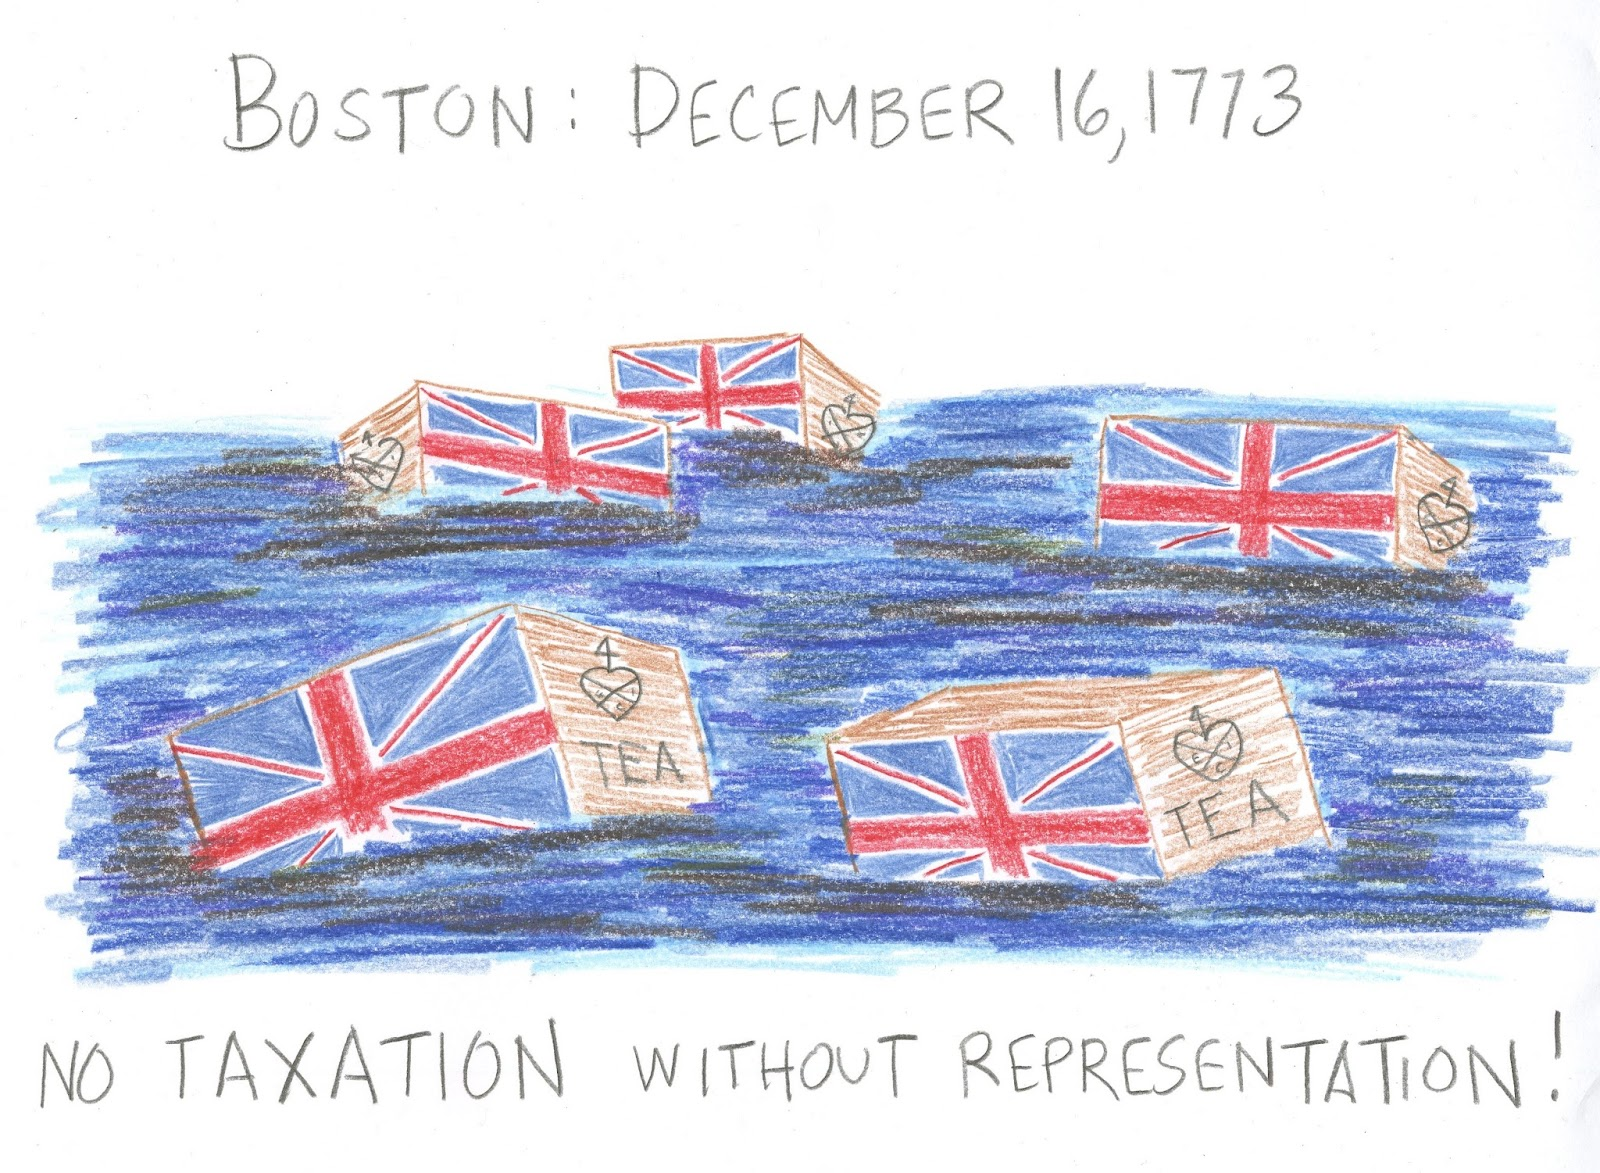 BOSTON: DECEMBER 16, 1773
TEA
TEA
NO TAXATION WITHOUT REPRESENTATION!